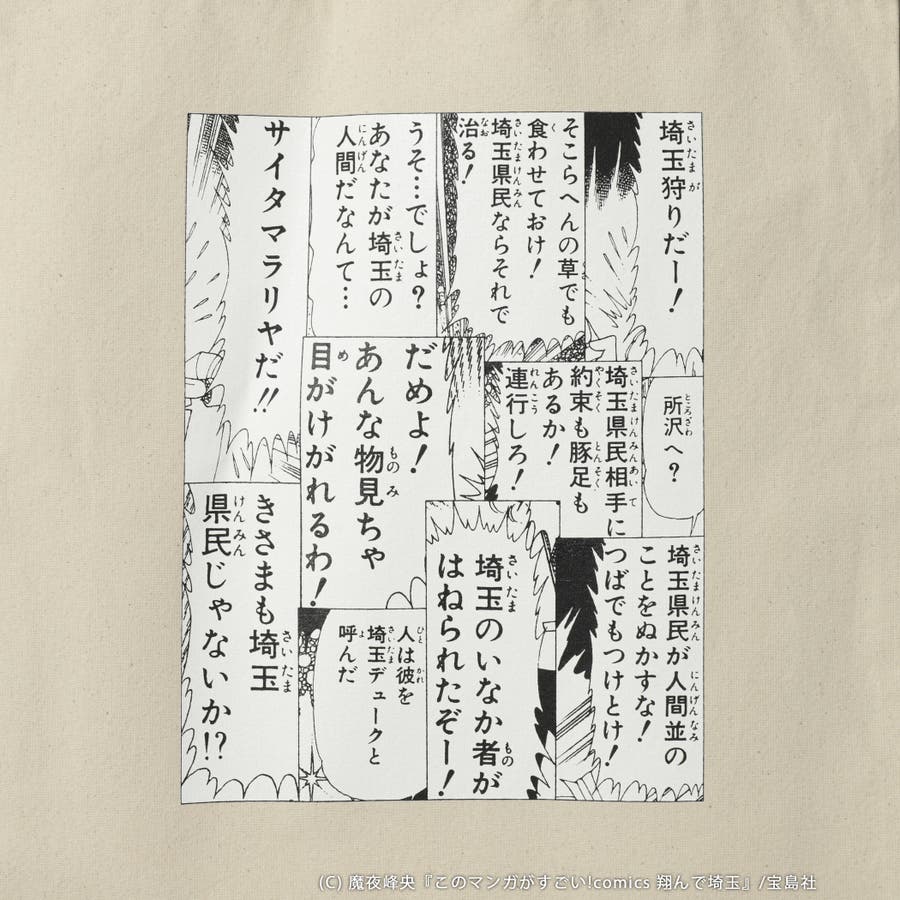 埼玉狩りだー！
そこらへんの草でも
食わせておけ！
埼玉県民ならそれで
治る！
うそ…でしょ？
あなたが埼玉の
人間だなんて…
サイタマラリヤだ!!
所沢へ？
埼玉県民相手に
約束も豚足も
あるか！
連行しろ！
だめよ！
あんな物見ちゃ
目がけがれるわ！
埼玉県民が人間並の
ことをぬかすな！
つばでもつけとけ！
埼玉のいなか者が
はねられたぞー！
人は彼を
埼玉デュークと
呼んだ
きさまも埼玉
県民じゃないか!?
(C) 魔夜峰央『このマンガがすごい!comics 翔んで埼玉』/宝島社